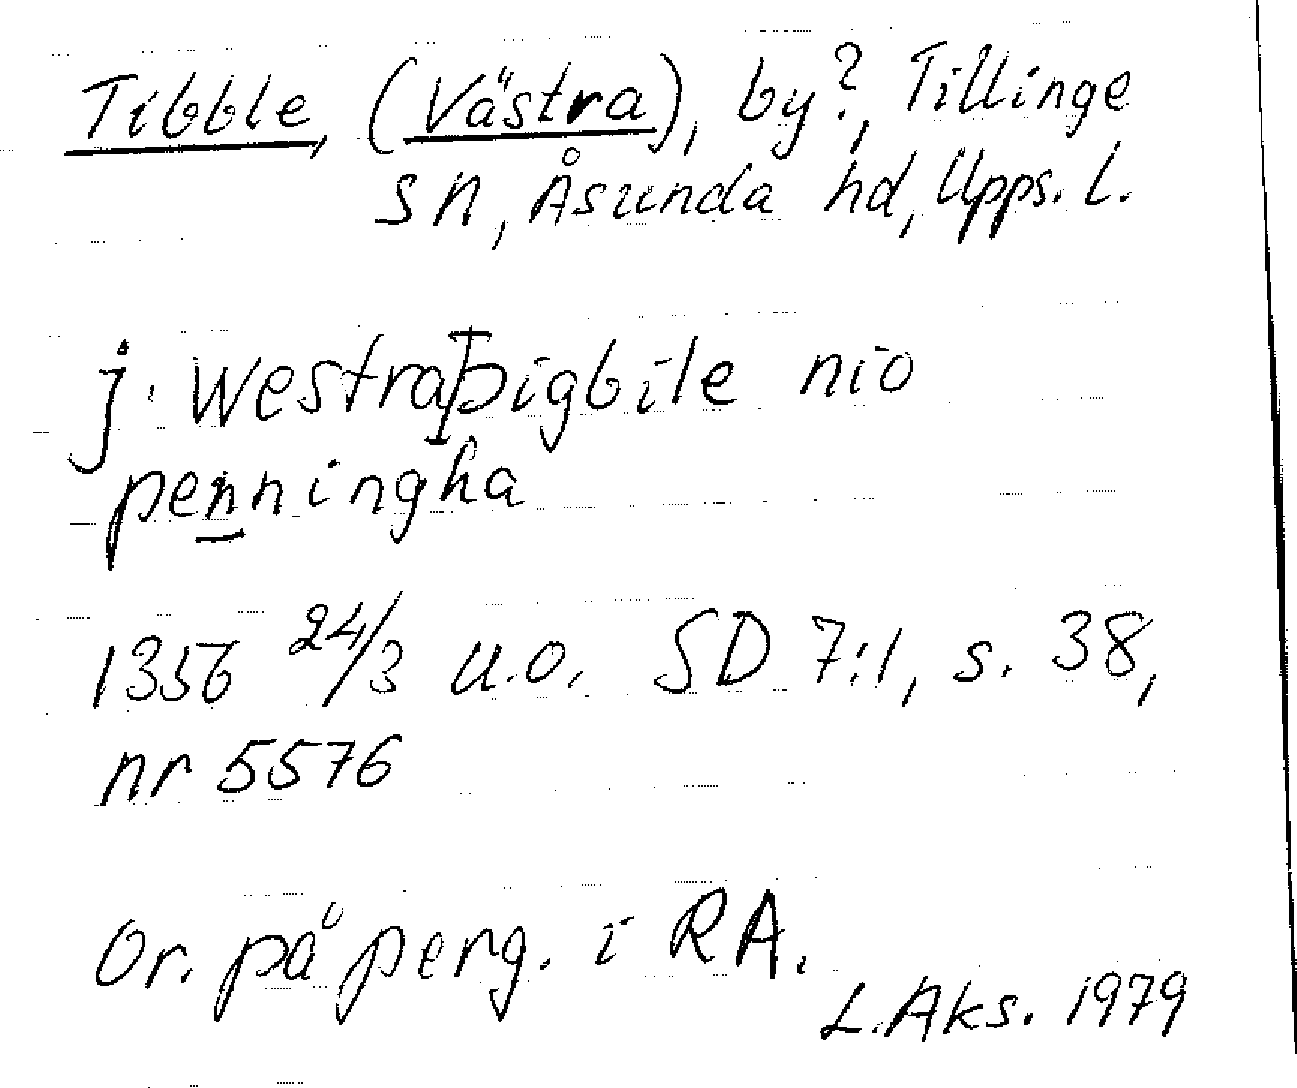 Tibble, (Västra), by?, Tillinge
sn, Åsunda hd, Upps. l.
j. Westraþigbile nio
penningha
1356 24/3 u.o. SD 7:1, s. 38,
nr 5576
Or. på perg. i RA.
L. Aks. 1979